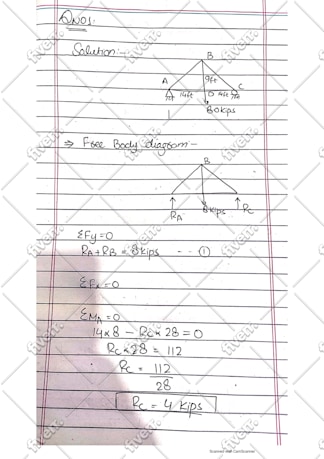 QNO1.
Solution:-
B
9ft
A
C
14ft
D
14ft
80kips
⇒ Free Body diagram-
B
RA
8kips
Rc
ΣFy=0
RA+RB = 8kips - - - ①
ΣFx=0
ΣMA=0
14x8 - Rcx28 = 0
Rcx28 = 112
Rc = 112
28
Rc = 4 kips
Scanned with CamScanner